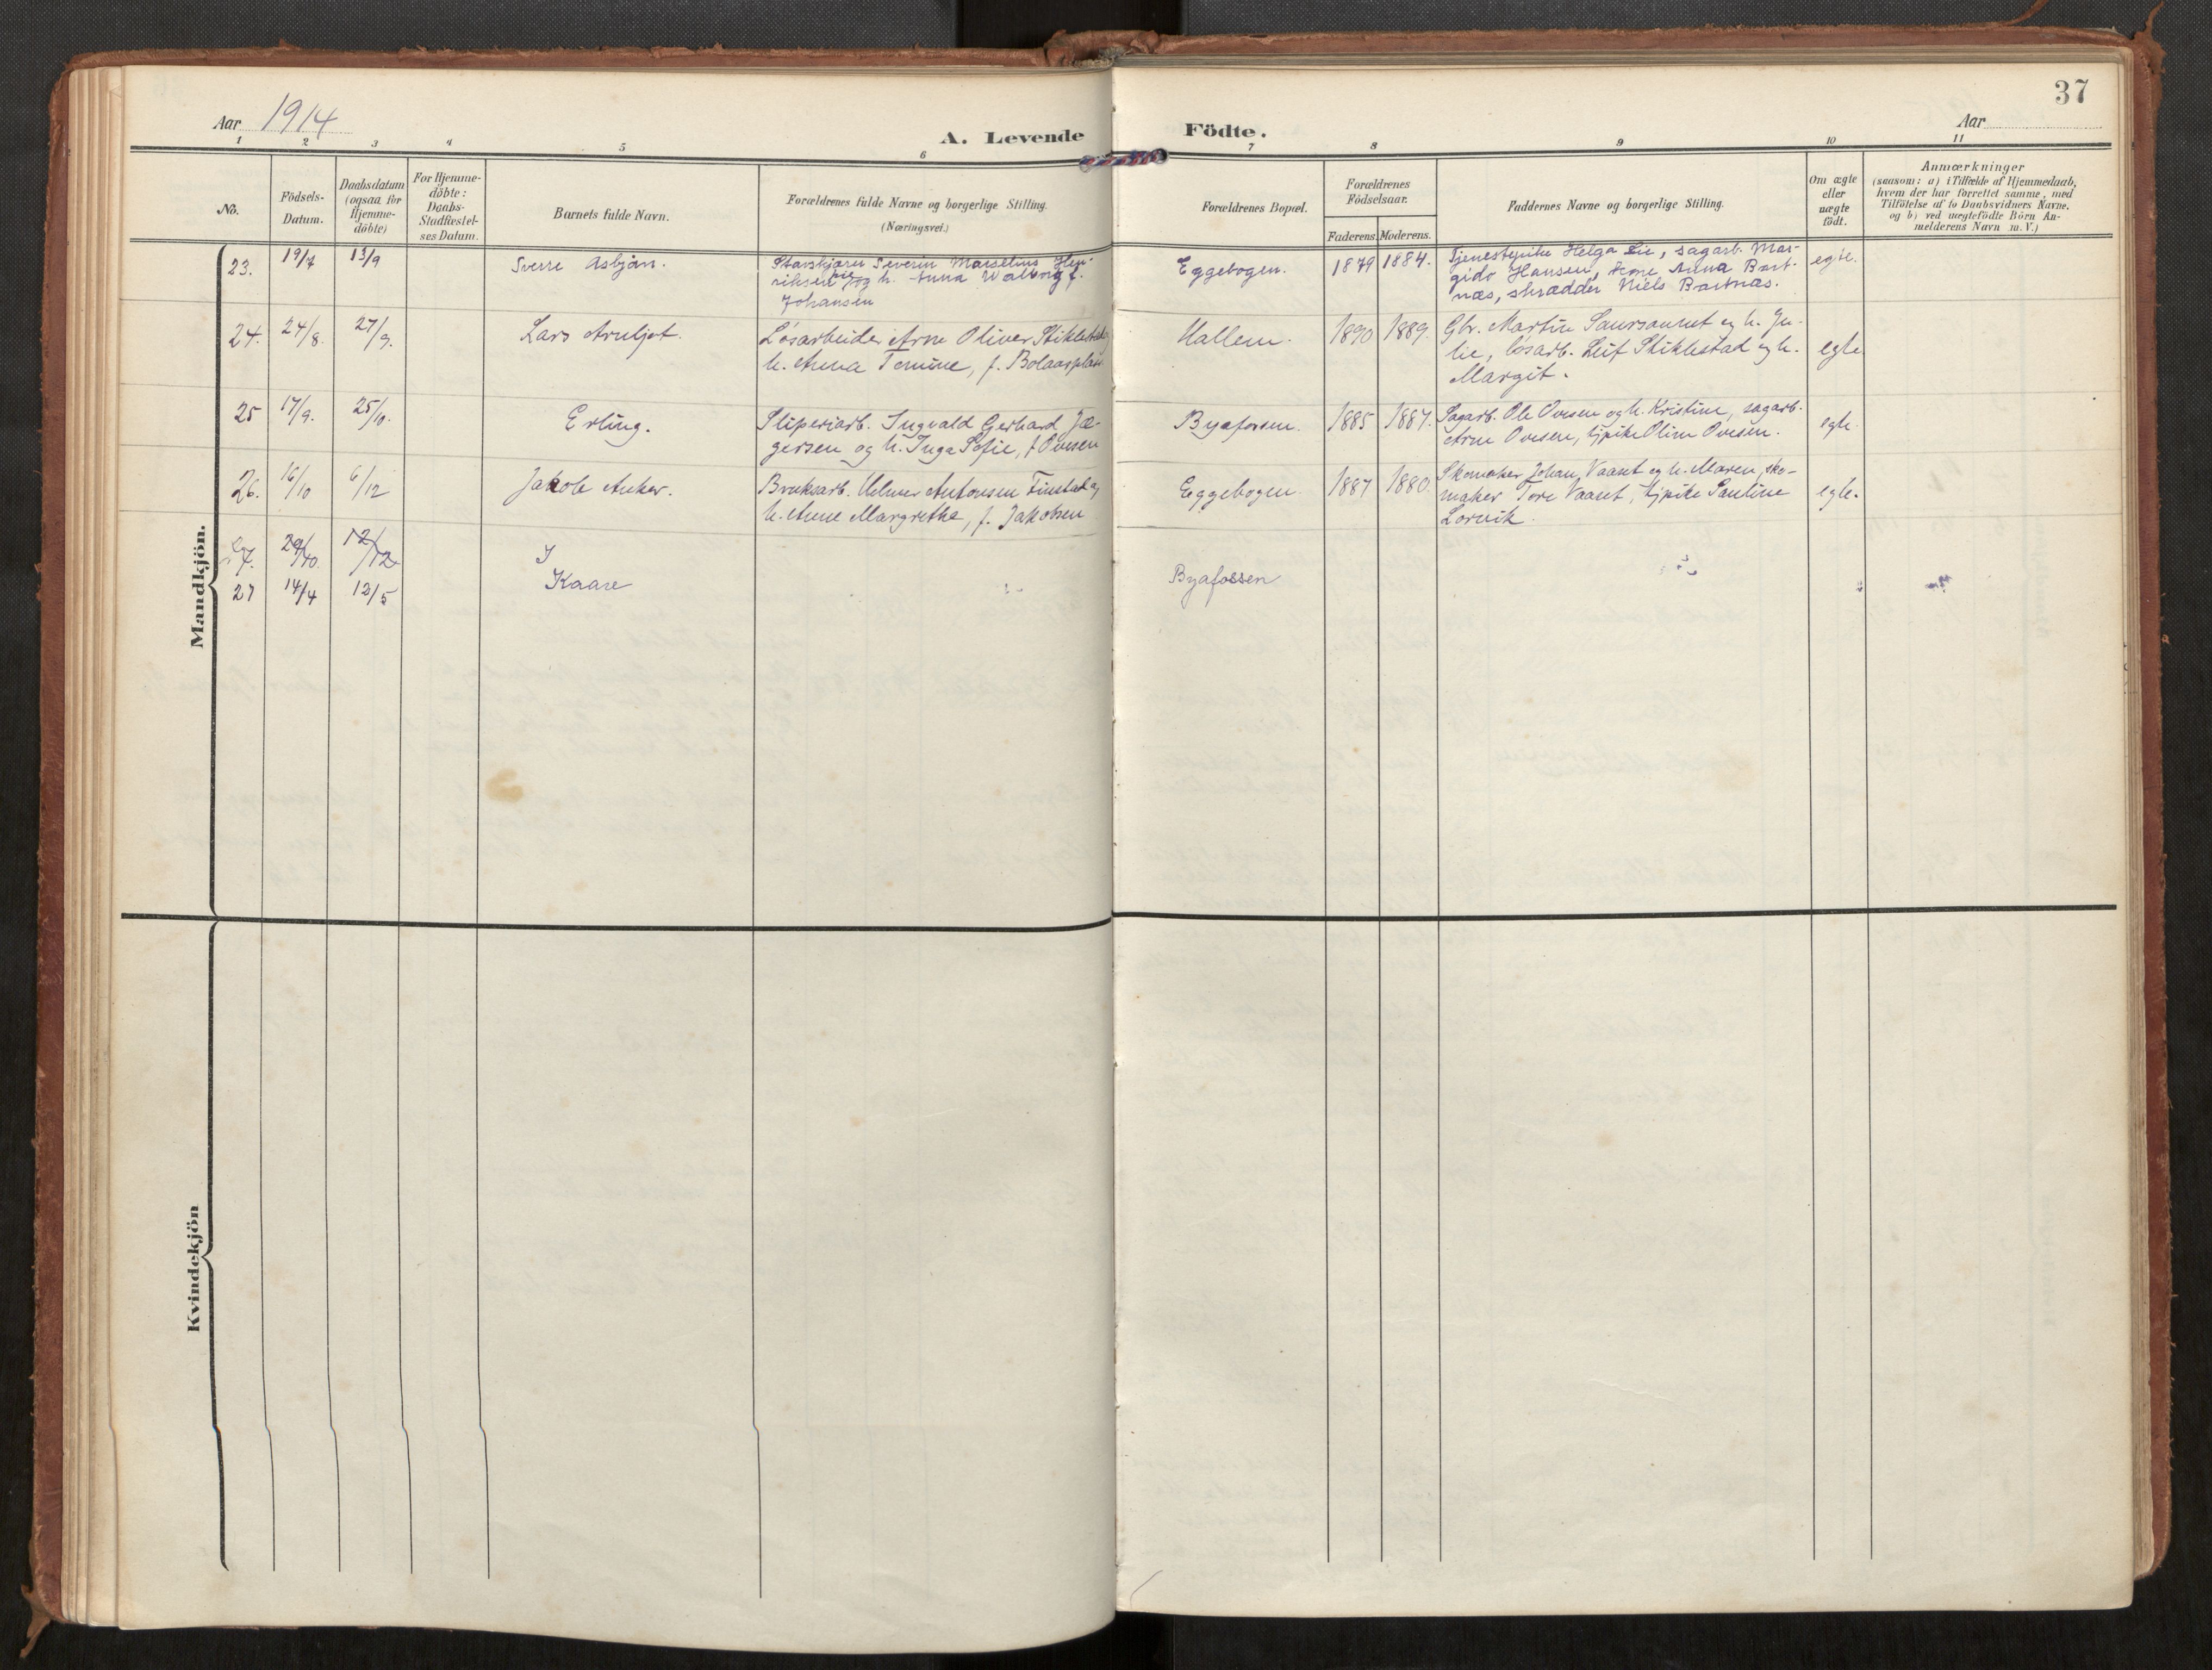 37
Aar 1914
A. Levende Födte.
Aar
1 2 3 4 5 6 7 8 9 10 11
No.
Födsels-
Datum.
Daabsdatum
(ogsaa for
Hjemme-
döbte)
For Hjemme-
döbte:
Daabs-
Stadfæstel-
ses Datum.
Barnets fulde Navn.
Forældrenes fulde Navne og borgerlige Stilling.
(Næringsvei.)
Forældrenes Bopæl.
Forældrenes
Födselsaar.
Faderens. Moderens.
Faddernes Navne og borgerlige Stilling.
Om ægte
eller
uægte
födt.
Anmærkninger
(saasom: a) i Tilfælde af Hjemmedaab,
hvem der har forrettet samme, med
Tilföielse af to Daabsvidners Navne,
og b) ved uægtefödte Börn An-
melderens Navn m. V.)
Mandkjön.
23. 19/7 13/9
Sverre Asbjørn.
Severin Marselius Hen-
riksen Lie og h. Anna Walborg f.
Johansen
Eggebogen. 1879 1884.
Tjenestepike Helga Lie, sagarb. Mar-
gido Hansen, Anna Bart-
næs, skrædder Niels Bartnæs.
egte.
24. 24/8 27/9.
Lars Arnljot.
Løsarbeider Arne Oliver Stiklestad og
h. Anna Temine, f. Bolaasplass
Hallem. 1890 1889.
Gbr. Martin og h. Ju-
lie, løsarb. Leif Stiklestad og h.
Margit.
egte
25 17/9. 25/10.
Erling.
Sliperiarb. Ingvald Gerhard Jæ-
gersen og h. Inga Sofie, f. Ovesen
Byafossen. 1885 1887.
Sagarb. Ole Ovesen og h. Kristine, sagarb.
Arne Ovesen, tjpike Oline Ovesen.
egte.
26. 16/10 6/12
Jakob Anker.
Bruksarb. Helmer Antonsen Finstad og
h. Anne Margrethe, f. Jakobsen
Eggebogen. 1887 1880.
Skomaker Johan Vaaset og h. Maren, sko-
maker Tore Vaaset, tjpike Pauline
Lorvik.
egte.
27. 29/10. 12/12
I
27 14/4 12/5
Kaare
Byafossen
Kvindekjön